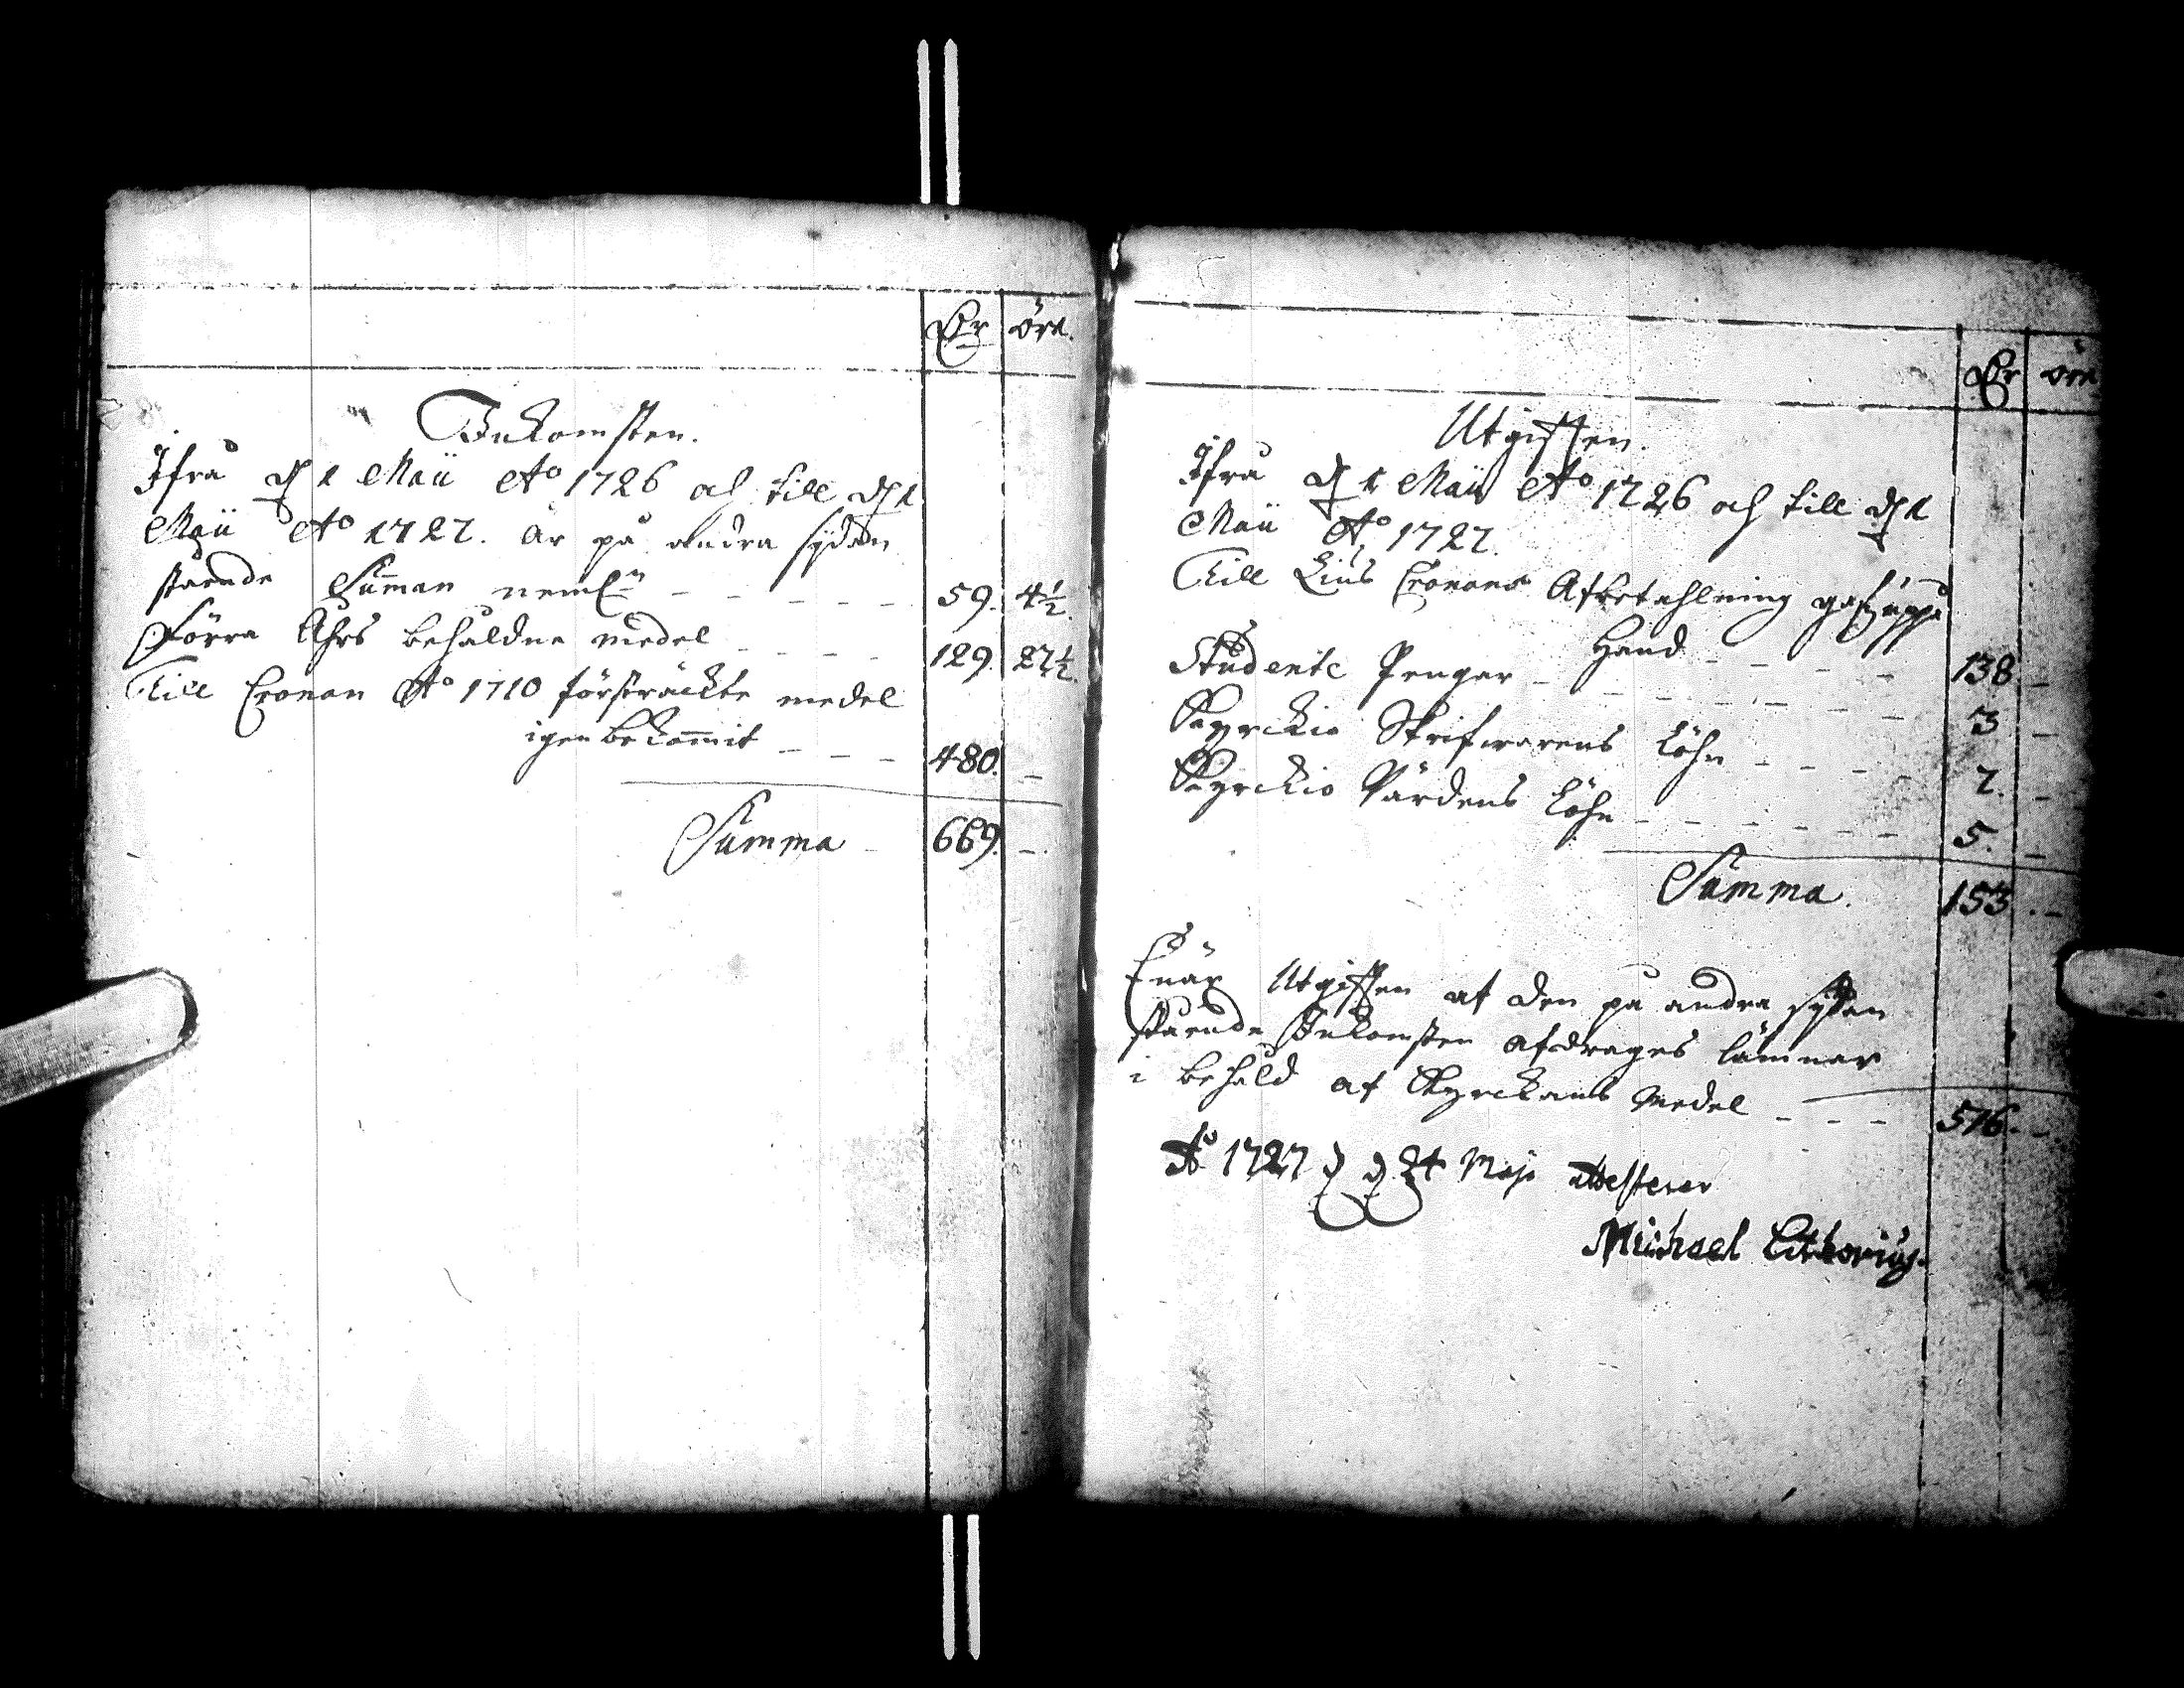 Dr öre.
Inkomsten.
Ifrå d 1 Maii Ao 1726 och till d 1
Maii Ao 1727. är på andra sijdan
stående Summan neml:n 59. 4 1/2.
Förra Åhrs behåldne medel 129. 27 1/2.
Till Cronan Ao 1710 förstrackte medel
igen bekommit 480. -
Summa 669. -.
Dr öre
Utgifften.
Ifrå d 1 Maii Ao 1726 och till d 1
Maii Ao 1727.
Till Lius Cronans Afbetahlning
Hand 138 -
Studente Pengar 3 -
Kyrckio Skrifwarens Löhn 7. -
Kyrckio Wärdens Löhn 5. -
Summa. 153. -
Enär Utgifften af den på andra sijdan
stående Inkomsten afdrages lämnar
i behåld af Kyrckans Medel 516. -
Ao 1727 d 24 Maji attesterar
Michael